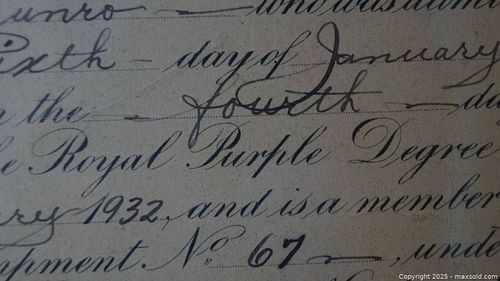 unro — who was admi
ixth — day of January
the — fourth — da
e Royal Purple Degree
ry 1932, and is a member
pment No 67 —, unde
Copyright © 2025 - maxsold.com